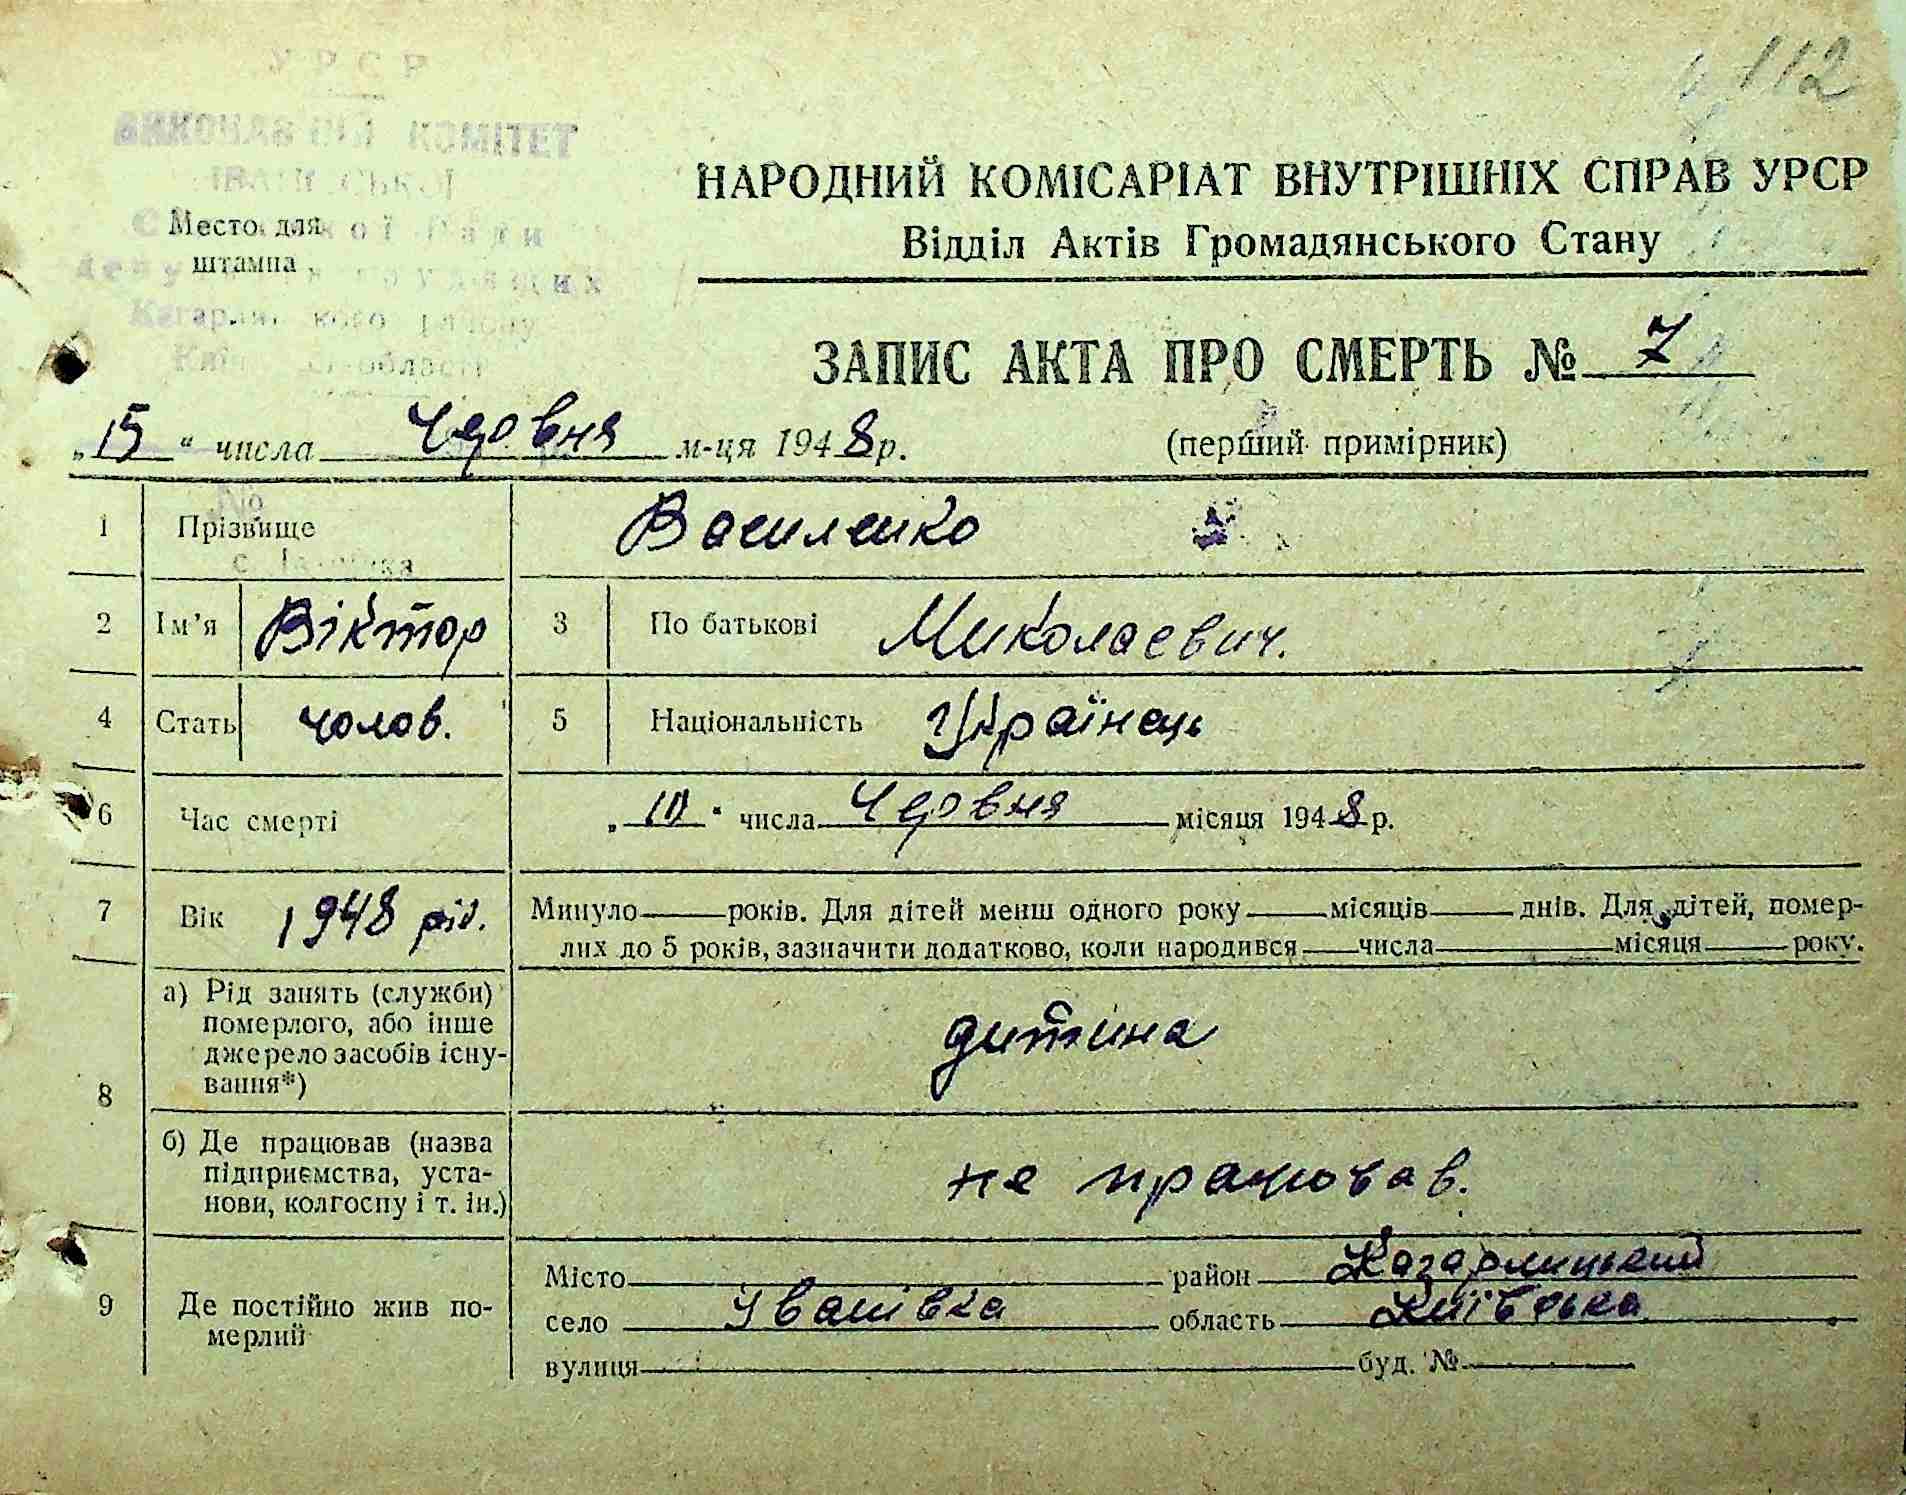 112
УРСР
ВИКОНАВЧИЙ КОМІТЕТ
НАРОДНИЙ КОМІСАРІАТ ВНУТРІШНІХ СПРАВ УРСР
Место для
штампа
Відділ Актів Громадянського Стану
району
області
ЗАПИС АКТА ПРО СМЕРТЬ № 7
„15“ числа Червня м-ця 1948 р. (перший примірник)
1 Прізвище Василенко
2 Ім’я Віктор 3 По батькові Миколаевич.
4 Стать чолов. 5 Національність Українець
6 Час смерті „10“ числа Червня місяця 1948 р.
7 Вік 1948 рів. Минуло років. Для дітей менш одного року місяців днів. Для дітей, помер-
лих до 5 років, зазначити додатково, коли народився числа місяця року.
8 а) Рід занять (служби)
померлого, або інше
джерело засобів існу-
вання*)
дитина
б) Де працював (назва
підприємства, уста-
нови, колгоспу і т. ін.)
не працював.
9 Де постійно жив по-
мерлий
Місто район Кагарлицький
село Іванівка область Київська
вулиця буд. №